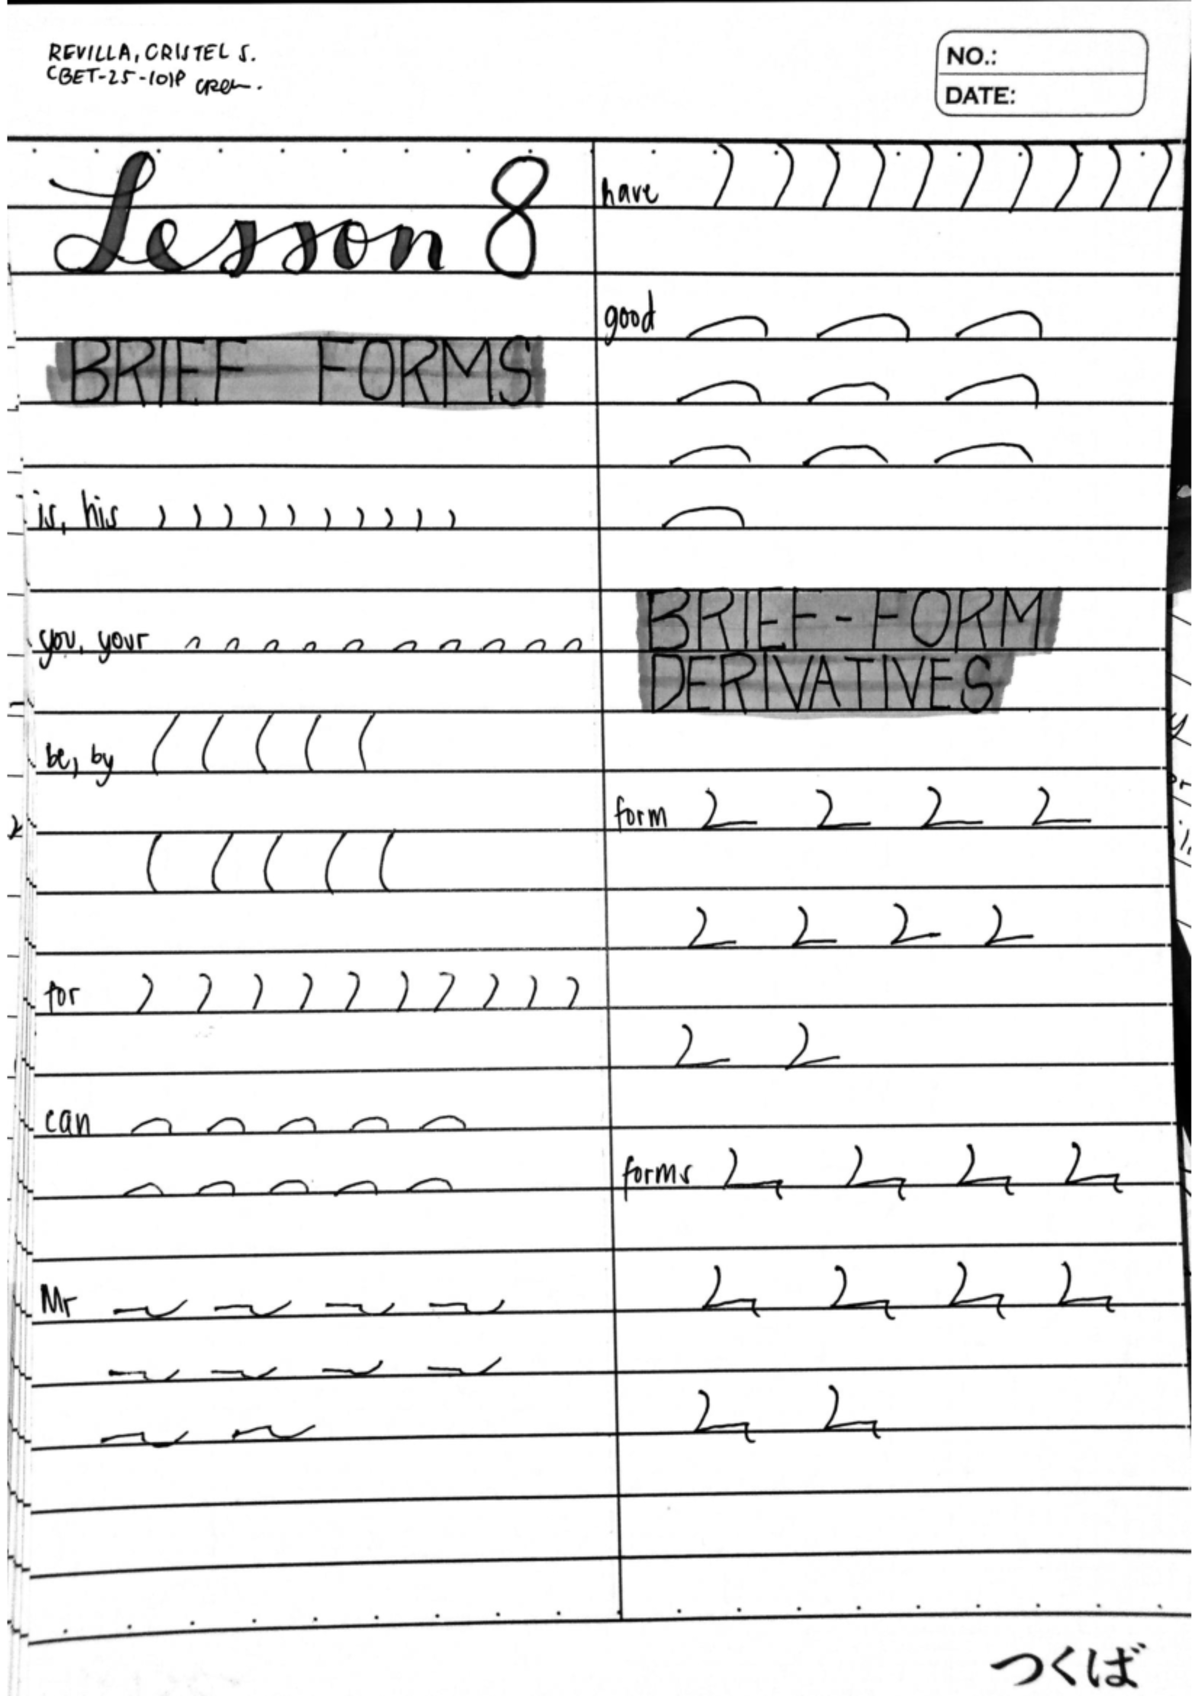 REVILLA, CRISTEL S.
CBET-25-101P
NO.:
DATE:
Lesson 8
BRIEF FORMS
is, his
you, your
be, by
for
can
Mr
have
good
BRIEF-FORM
DERIVATIVES
form
forms
つくば